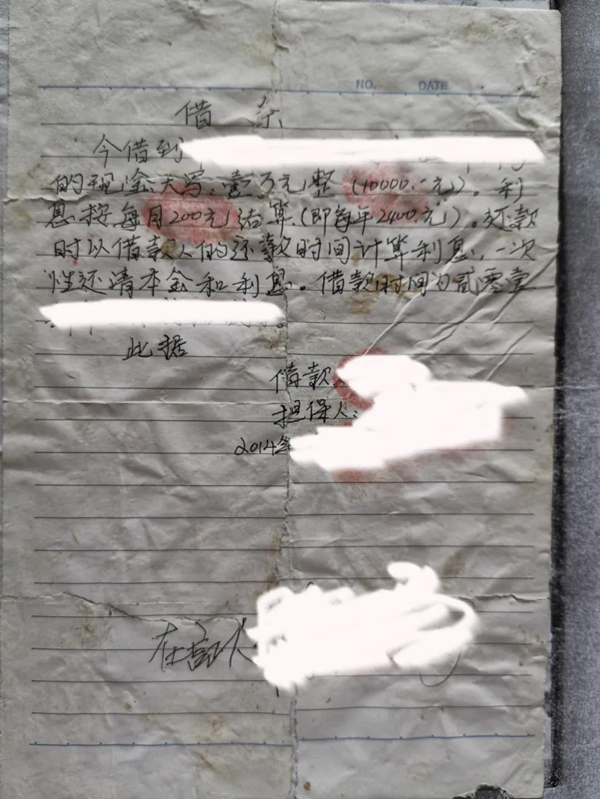 NO. DATE
借 条
今借到
的现金大写:壹万元整(10000.-元)。利
息按每月200元结算.(即每年2400.元).还款
时以借款人的还款时间计算利息,一次
性还清本金和利息。借款时间为贰零壹
此据
借款
担保人:
2014年
在场人